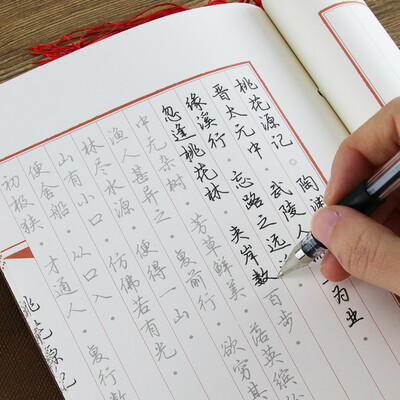 桃花源记。陶渊
晋太元中。武陵人 为业
缘溪行。忘路之远
忽逢桃花林。夹岸数百步。
中无杂树。芳草鲜美。落英缤
渔人甚异之。复前行。欲穷其
林尽水源。便得一山
山有小口。仿佛若有光。
便舍船。从口入。
初极狭。才通人。复行数
桃花源记